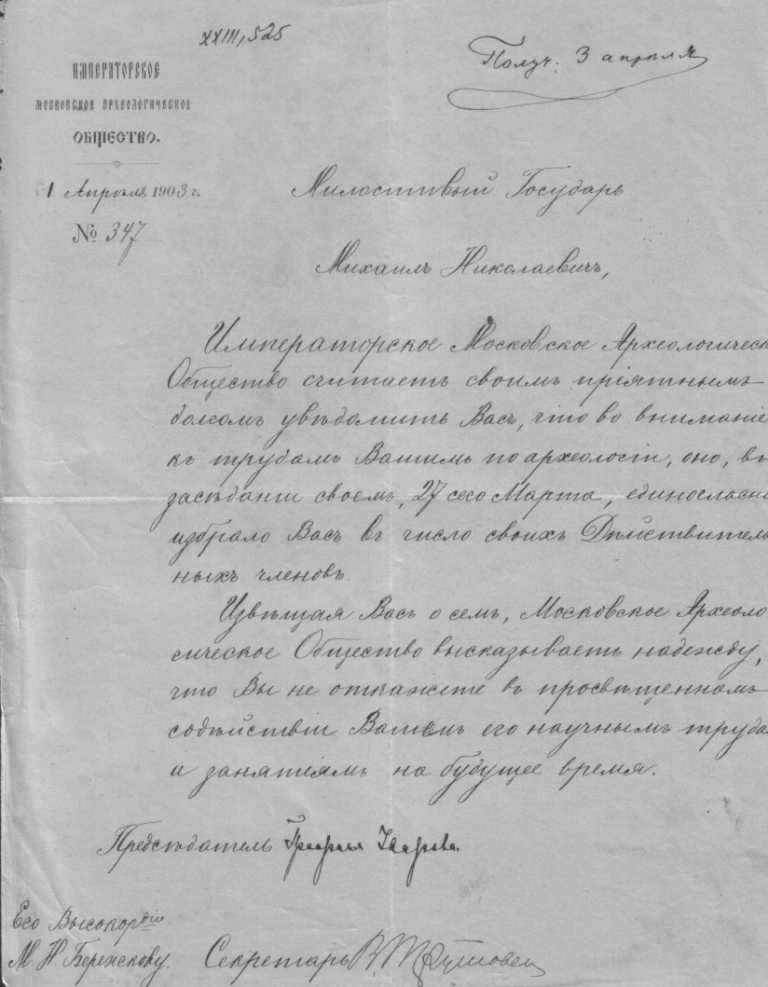 XXIII, 525
Получ. 3 апреля
ИМПЕРАТОРСКОЕ
МОСКОВСКОЕ АРХЕОЛОГИЧЕСКОЕ
ОБЩЕСТВО.
1 Апреля 1903 г.
№ 347
Милостивый Государь
Михаилъ Николаевичъ,
Императорское Московское Археологическ
Общество считаетъ своимъ прiятнымъ
долгомъ увѣдомить Васъ, что во вниманiе
къ трудамъ Вашимъ по археологiи, оно, въ
засѣданiи своемъ, 27 сего Марта, единогласно
избрало Васъ въ число своихъ Дѣйствитель
ныхъ членовъ.
Извѣщая Васъ о семъ, Московское Археоло
гическое Общество высказываетъ надежду,
что Вы не откажете въ просвѣщенномъ
содѣйствiи Вашемъ его научнымъ труда
и занятiямъ на будущее время.
Предсѣдатель Графиня Уварова.
Его Высокородiю
М. Н. Бережкову.
Секретарь В. Трутовск